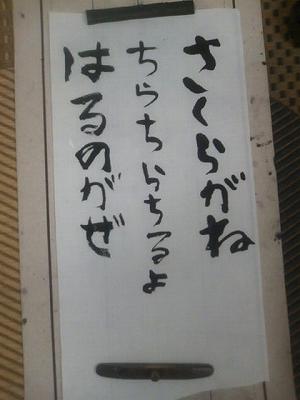 さくらがね
ちらちらちるよ
はるのがぜ